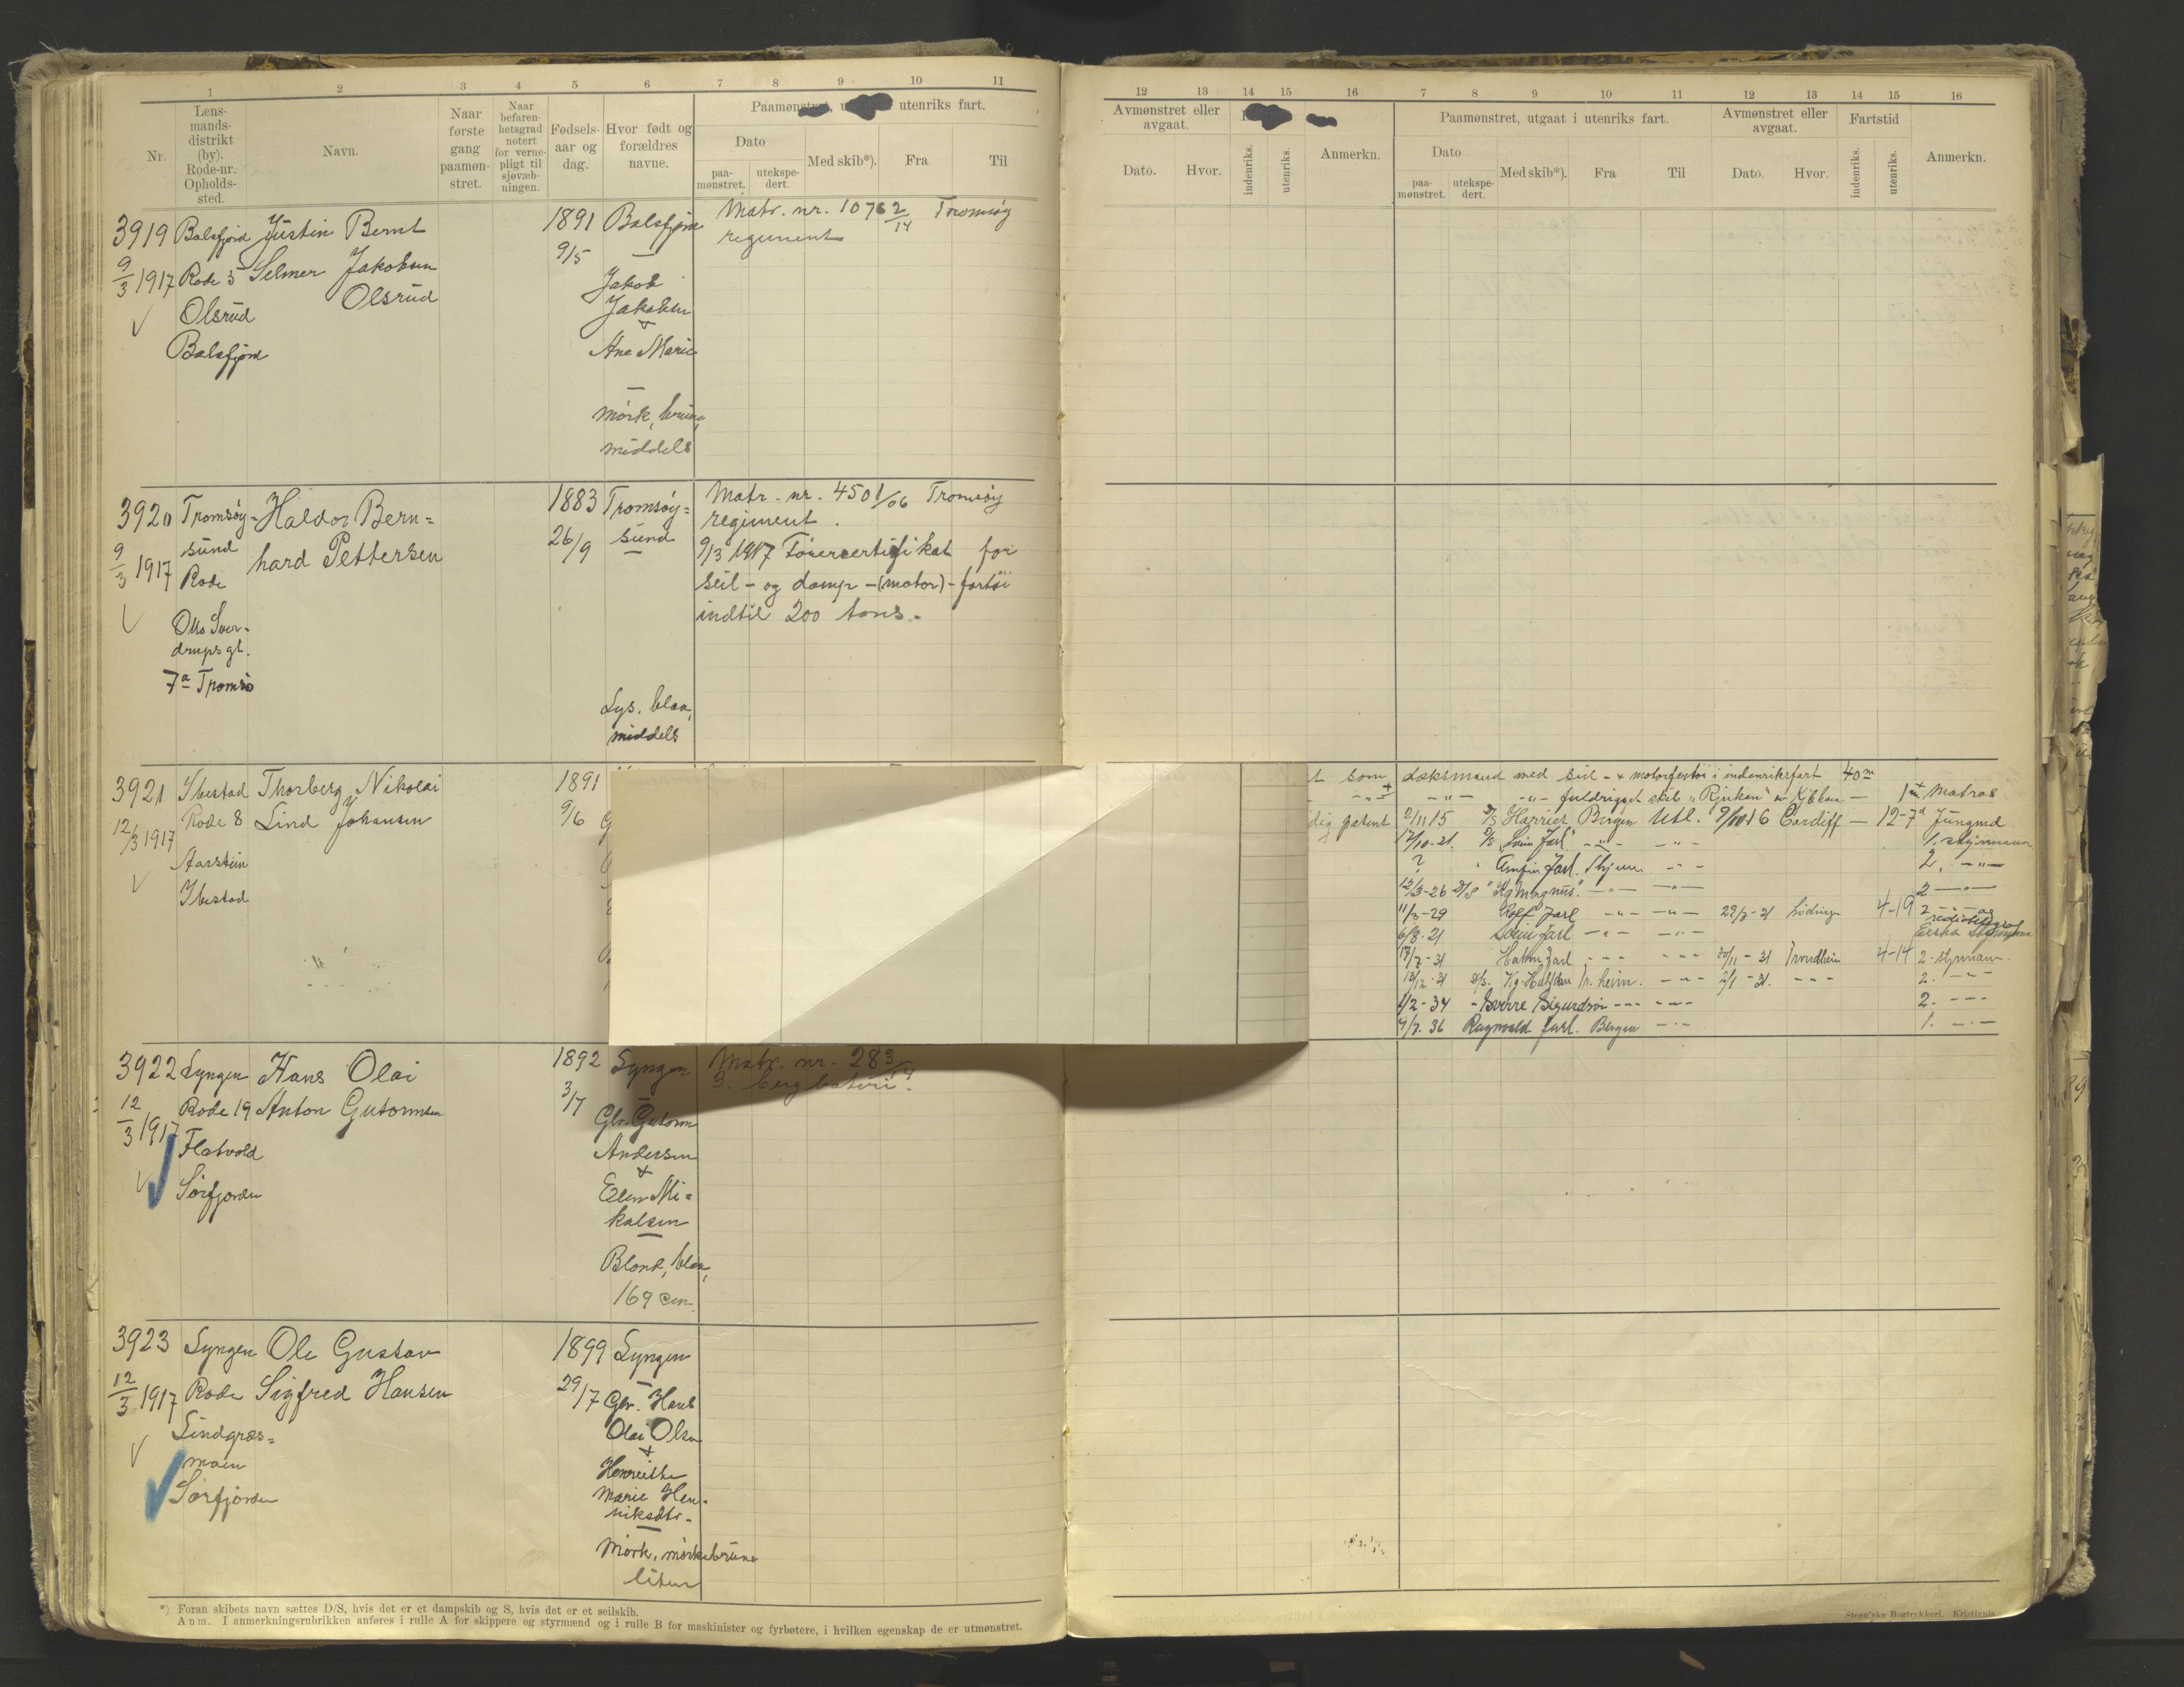 1 2 3 4 5 6 7 8 9 10 11
Nr.
Lens-
mands-
distrikt
(by).
Rode-nr.
Opholds-
sted.
Navn.
Naar
første
gang
paamøn-
stret.
Naar
befaren-
hetsgrad
notert
for verne-
pligt til
sjøvæb-
ningen.
Fødsels-
aar og
dag.
Hvor født og
forældres
navne.
Paamønstret, utenriks fart.
Dato
paa-
mønstret.
utekspe-
dert.
Med skib*).
Fra
Til
12 13 14 15 16 7 8 9 10 11 12 13 14 15 16
Avmønstret eller
avgaat.
Dato. Hvor.
indenriks.
utenriks.
Anmerkn.
Paamønstret, utgaat i utenriks fart.
Dato
paa-
mønstret.
utekspe-
dert.
Med skib*).
Fra
Til
Avmønstret eller
avgaat.
Dato. Hvor.
Fartstid
indenriks.
utenriks.
Anmerkn.
3919 Balsfjord Justin Bernt
9/3 1917 Rode 5 Selmer Jakobsen
Olsrud Olsrud
Balsfjord
1891
9/5
Balsfjord
Jakob
Jakobsen
+
Ane Marie
Mörk, brune,
middels
Matr. nr. 1076 2/14 Tromsöy
regiment
3920 Tromsöy= Haldor Bern=
sund hard Pettersen
9/3 1917 Rode
Otto Sver-
drups gt.
7a Tromsö
1883
26/9
Tromsöy=
sund
Lys, blaa,
middels
Matr. nr. 450 1/06 Tromsöy
regiment.
9/3 1917 Förercertifikat for
seil- og damp-(motor)-fartöi
indtil 200 tons.
3921 Ibestad Thorberg Nikolai
Rode 8 Lind Johansen
12/3 1917
Aarstein
Ibestad
1891
9/6
som dæksmand med seil- + motorfartöi i indenriksfart 40 m
-"- -"- fuldrigget skib "Rjukan" Matros
patent 2/11 15 D/S Harriet Bergen Utl. 16 Cardiff — 12-7d Jungmd
17/10-21. D/S Jarl" -"- -"- 1. styrmann
? Jarl. -"- 2. -"-
12/3-26 D/S "Kg Magnus" -"- -"- 2 -"-
11/3-29 Rolf Jarl -"- -"- 29/7-31 Lödingen 4-19 2 -"- og
radiotelegraf
6/8-21 Jarl -"- -"-
17/7-31 Hakon Jarl -"- -"- 30/11-31 Trondheim 4-14 2-styrmann
18/12-31 D/S. Kg. Halfdan Tr.heim. -"- 2/1-31. -"- 2. -"-
1/2-34 - Sverre Sigurdsön -"- -"- 2. -"-
4/7.36 Ragnvald Jarl. Bergen -"- 1. -"-
3922 Lyngen Hans Olai
Rode 19 Anton Gutormsen
12/3 1917
Flatvold
Sörfjorden
1892
3/7
Lyngen
Gbr. Gutorm
Andersen
+
Elen Mi=
kalsen
Blond, blaa,
169 cm.
Matr. nr. 283/14
3. bergbatteri.
3923 Lyngen Ole Gustav
12/3 1917 Rode Sigfred Hansen
Lindgræs=
moen
Sörfjorden
1899
29/7
Lyngen
Gbr. Hans
Olai Olsen
+
Henriette
Marie Hen-
riksdtr.
Mörk, mörkebrune
liten
*) Foran skibets navn sættes D/S, hvis det er et dampskib og S, hvis det er et seilskib.
Anm. I anmerkningsrubrikken anføres i rulle A for skippere og styrmænd og i rulle B for maskinister og fyrbøtere, i hvilken egenskap de er utmønstret.
Steen'ske Bogtrykkeri. Kristiania